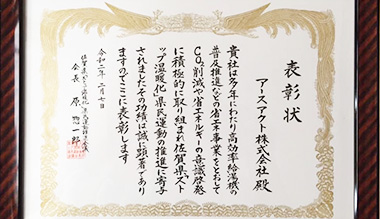 表彰状
アースアクト株式会社 殿
貴社は多年にわたり高効率給湯機の
普及推進などの省エネ事業をとおして
CO₂削減や省エネルギーの意識啓発
に積極的に取り組まれ佐賀県ストップ
温暖化 県民運動の推進に寄与
されましたその功績は誠に顕著であり
ますのでここに表彰します
令和二年二月七日
佐賀県
会長 原 惣一郎